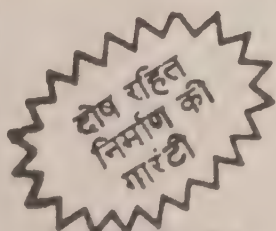 दोष रहित
निर्माण की
गारंटी